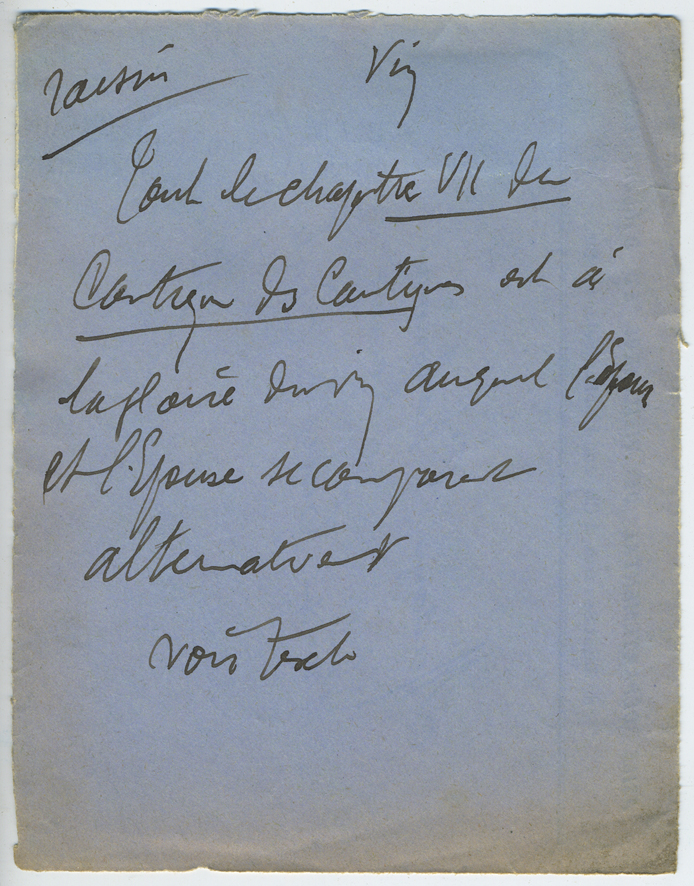 raisin Vin
Tout le chapitre VII du
Cantique des Cantiques est à
la gloire du vin auquel l'Epoux
et l'Epouse se comparent
alternativement
voir texte